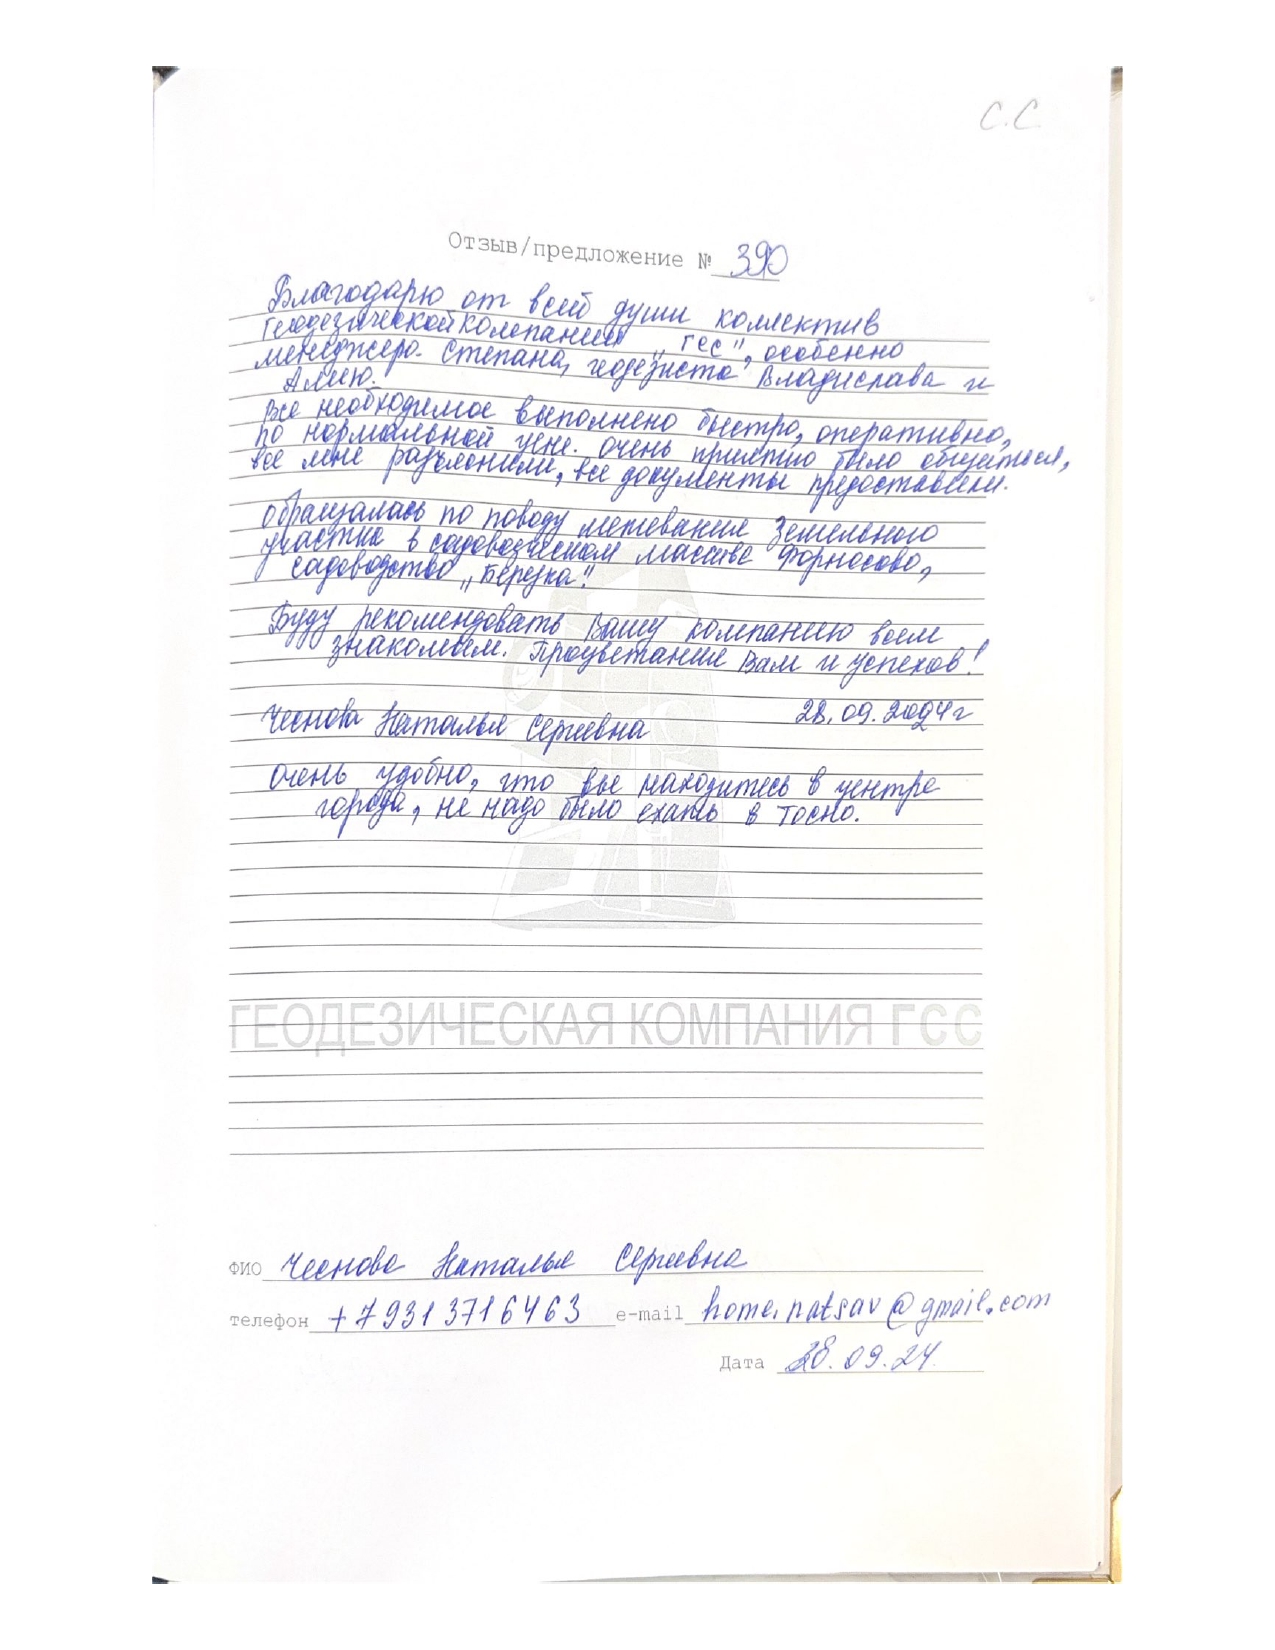 С.С.
Отзыв/предложение № 390
Благодарю от всей души коллектив
геодезической компании „ГСС", особенно
менеджера Степана, геодезиста Владислава и
Алию.
Все необходимое выполнено быстро, оперативно,
по нормальной цене. Очень приятно было общаться,
все мне разъяснили, все документы предоставили.
Обращалась по поводу межевания земельного
участка в садоводческом массиве Форносово,
садоводство „Березка".
Буду рекомендовать Вашу компанию всем
знакомым. Процветания Вам и успехов!
Чеснова Наталья Сергеевна 28.09.2024г
Очень удобно, что вы находитесь в центре
города, не надо было ехать в Тосно.
ГЕОДЕЗИЧЕСКАЯ КОМПАНИЯ ГСС
ФИО Чеснова Наталья Сергеевна
телефон +7 931 3716463 e-mail home.natsav@gmail.com
Дата 28.09.24.